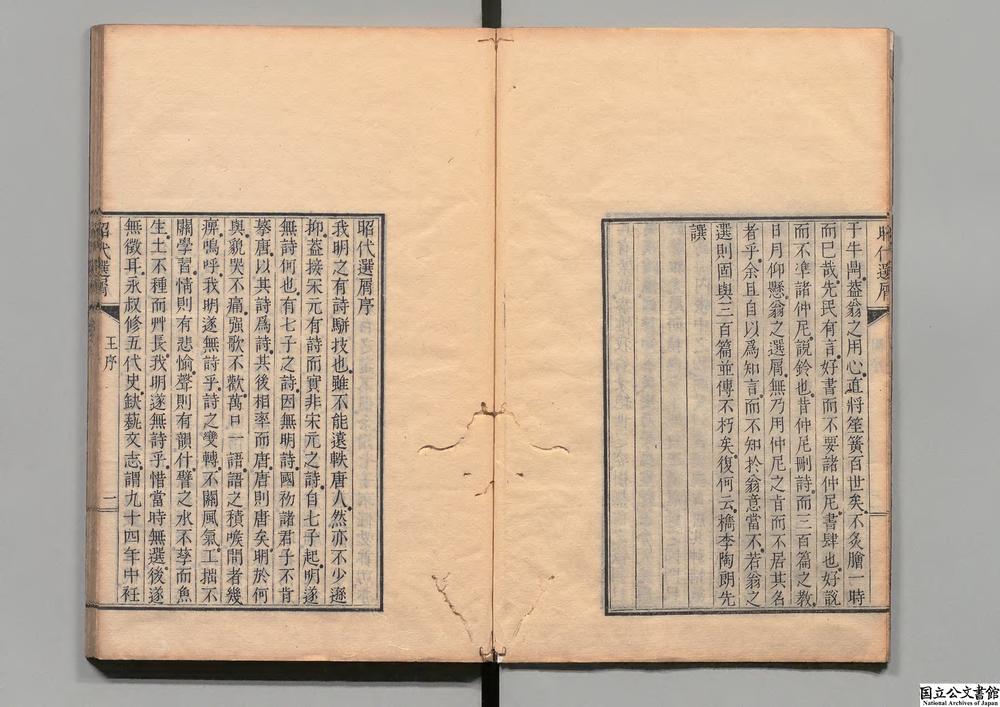 于牛鼎蓋翁之用心直將笙簧百世矣不炙膾一時
而已哉先民有言好書而不要諸仲尼書肆也好說
而不準諸仲尼說鈴也昔仲尼刪詩而三百篇之教
日月仰懸翁之選屑無乃用仲尼之旨而不居其名
者乎余且自以爲知言而不知於翁意當不若翁之
選則固與三百篇並傳不朽矣復何云檇李陶朗先
譔
昭代選屑序
我明之有詩駢技也雖不能遠軼唐人然亦不少遜
抑蓋接宋元有詩而實非宋元之詩自七子起明遂
無詩何也有七子之詩因無明詩國初諸君子不肯
摹唐以其詩爲詩其後相率而唐唐則唐矣明於何
與貌哭不痛強歌不歡萬口一語語之積喉間者幾
痹嗚呼我明遂無詩乎詩之變轉不關風氣工拙不
關學習情則有悲愉聲則有韻什譬之水不孳而魚
生土不種而艸長我明遂無詩乎惜當時無選後遂
無徵耳永叔修五代史缺蓺文志謂九十四年中衽
昭代選屑
王序
一
昭代選屑
国立公文書館
National Archives of Japan